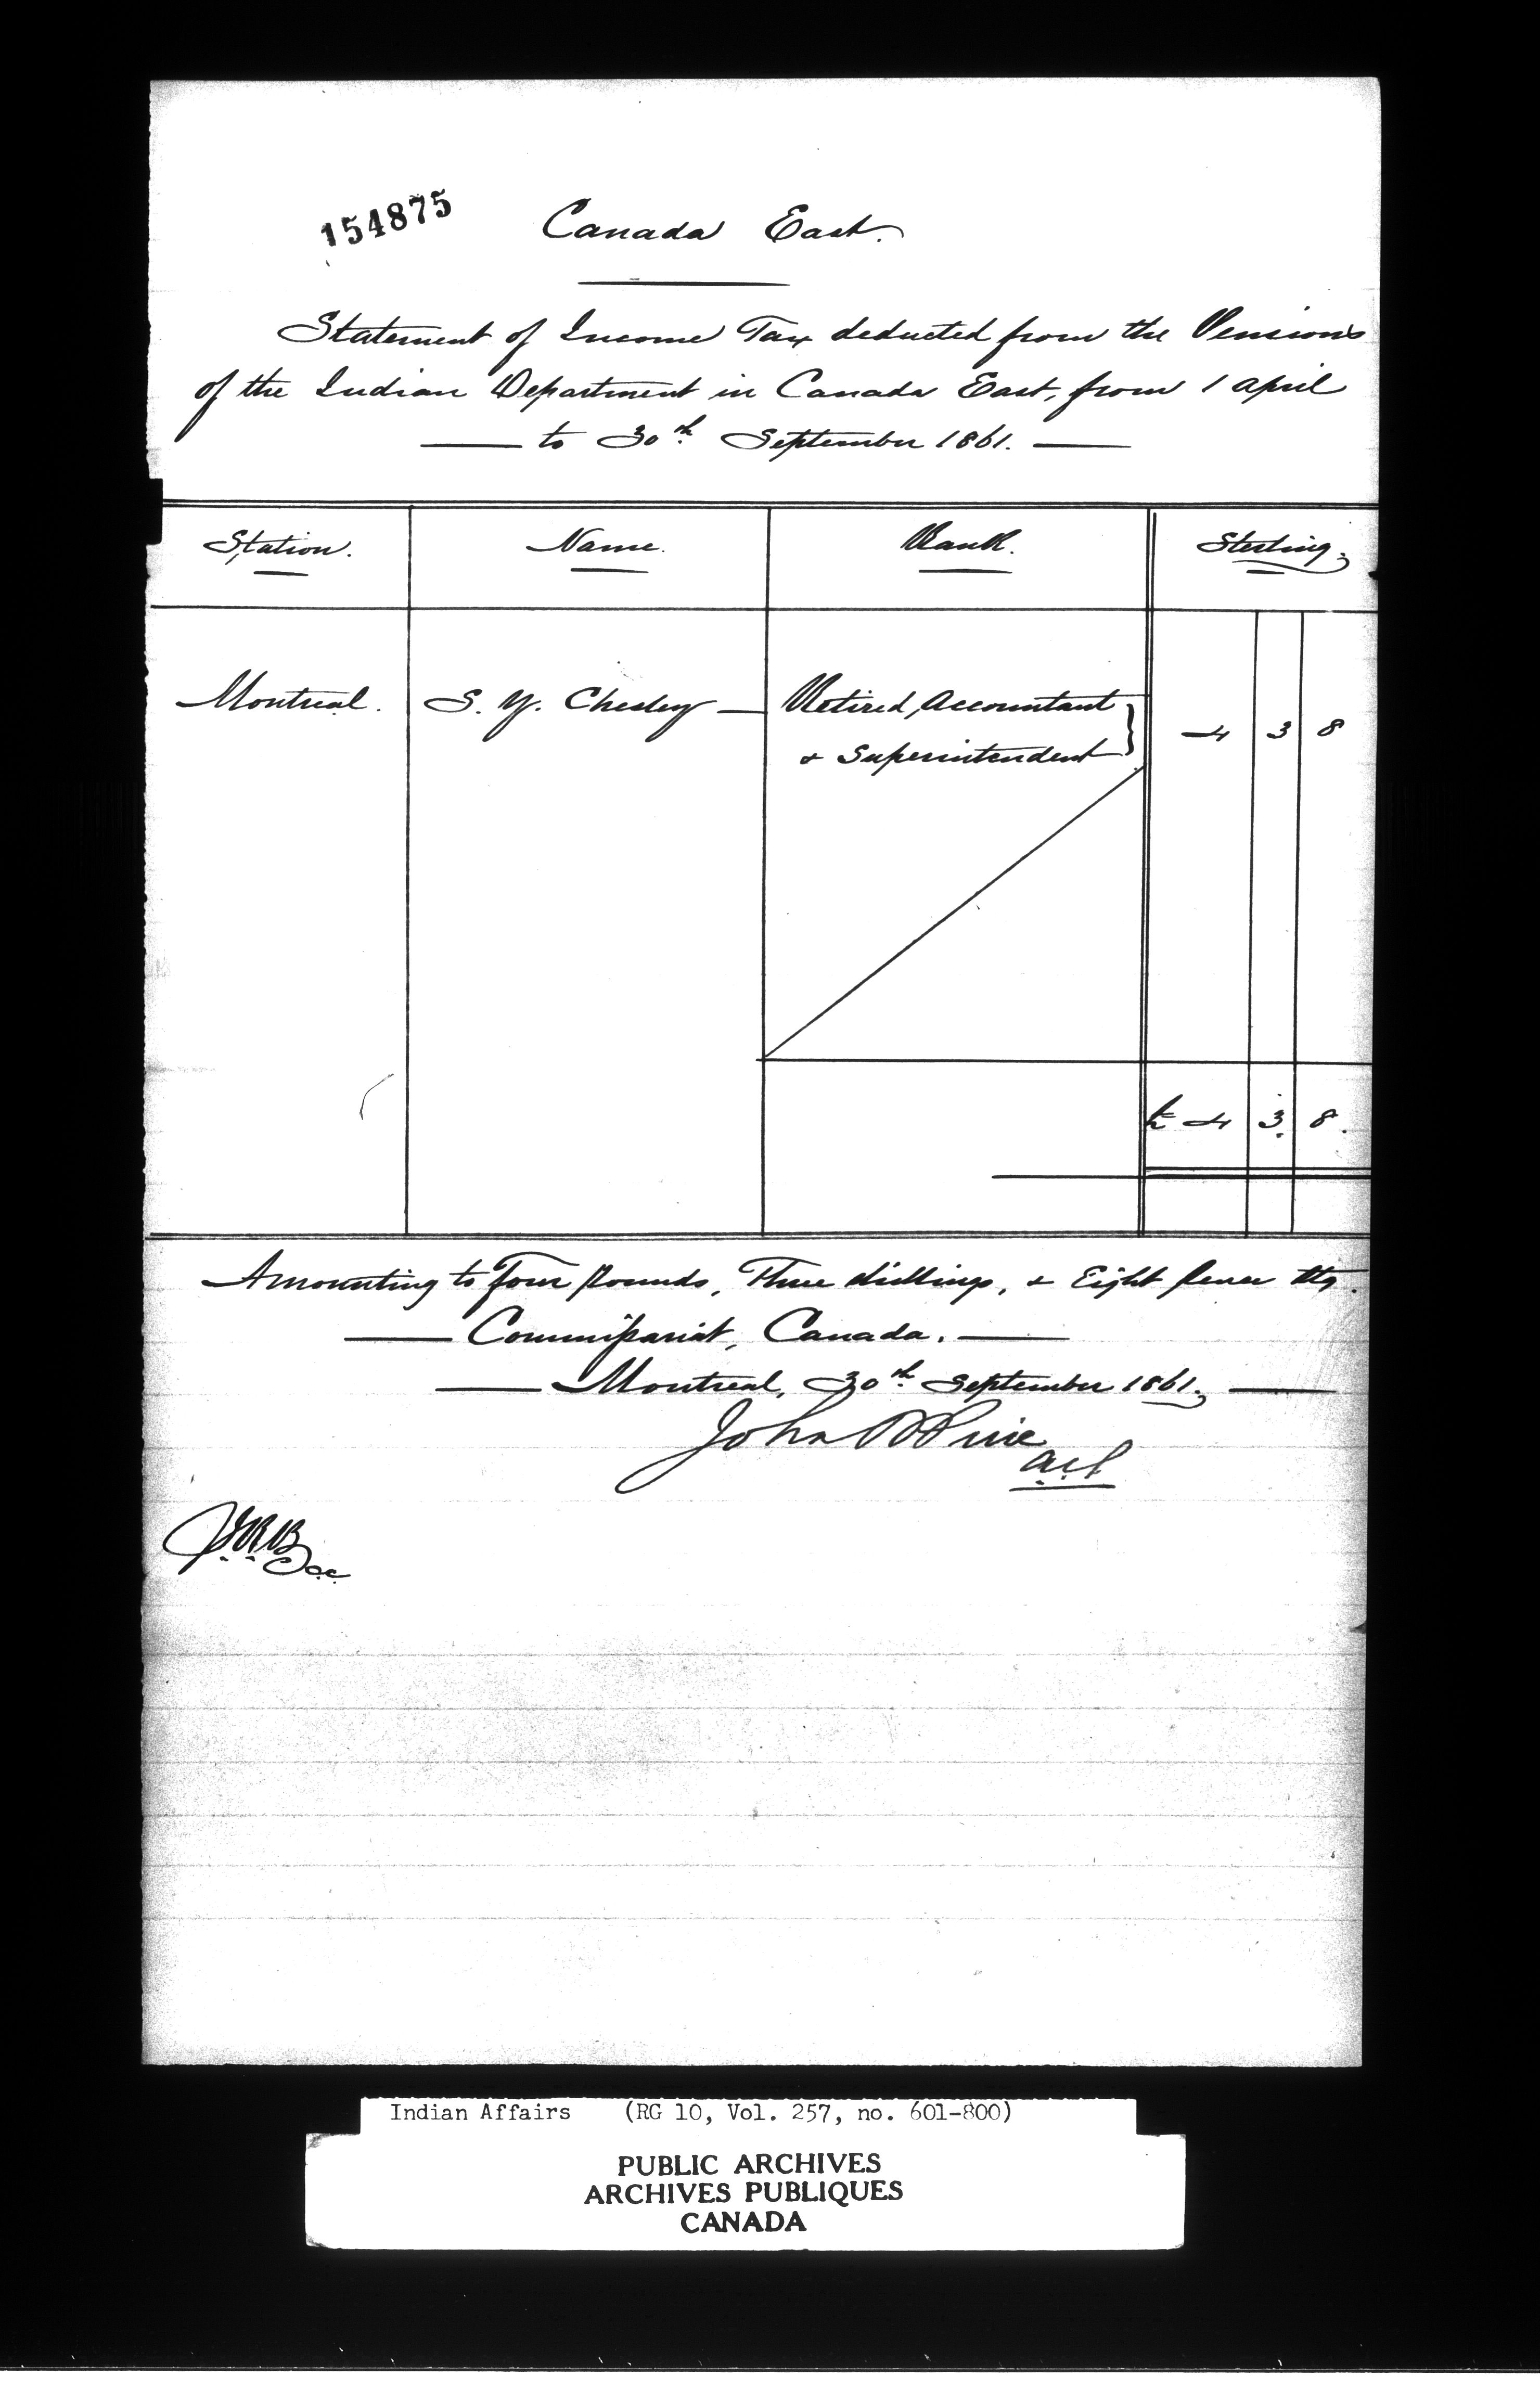 154875
Canada East.
Statement of Income Tax deducted from the Pensions
of the Indian Department in Canada East, from 1 April
to 30th September 1861.
Station. Name. Rank. Sterling.
Montreal. S. Y. Chesley Retired Accountant
& Superintendent 4 3 8
£ 4 3 8.
Amounting to Four Pounds, Three Shillings, & Eight Pence Stg.
Commissariat, Canada.
Montreal, 30th September 1861.
John
Indian Affairs (RG 10, Vol. 257, no. 601-800)
PUBLIC ARCHIVES
ARCHIVES PUBLIQUES
CANADA